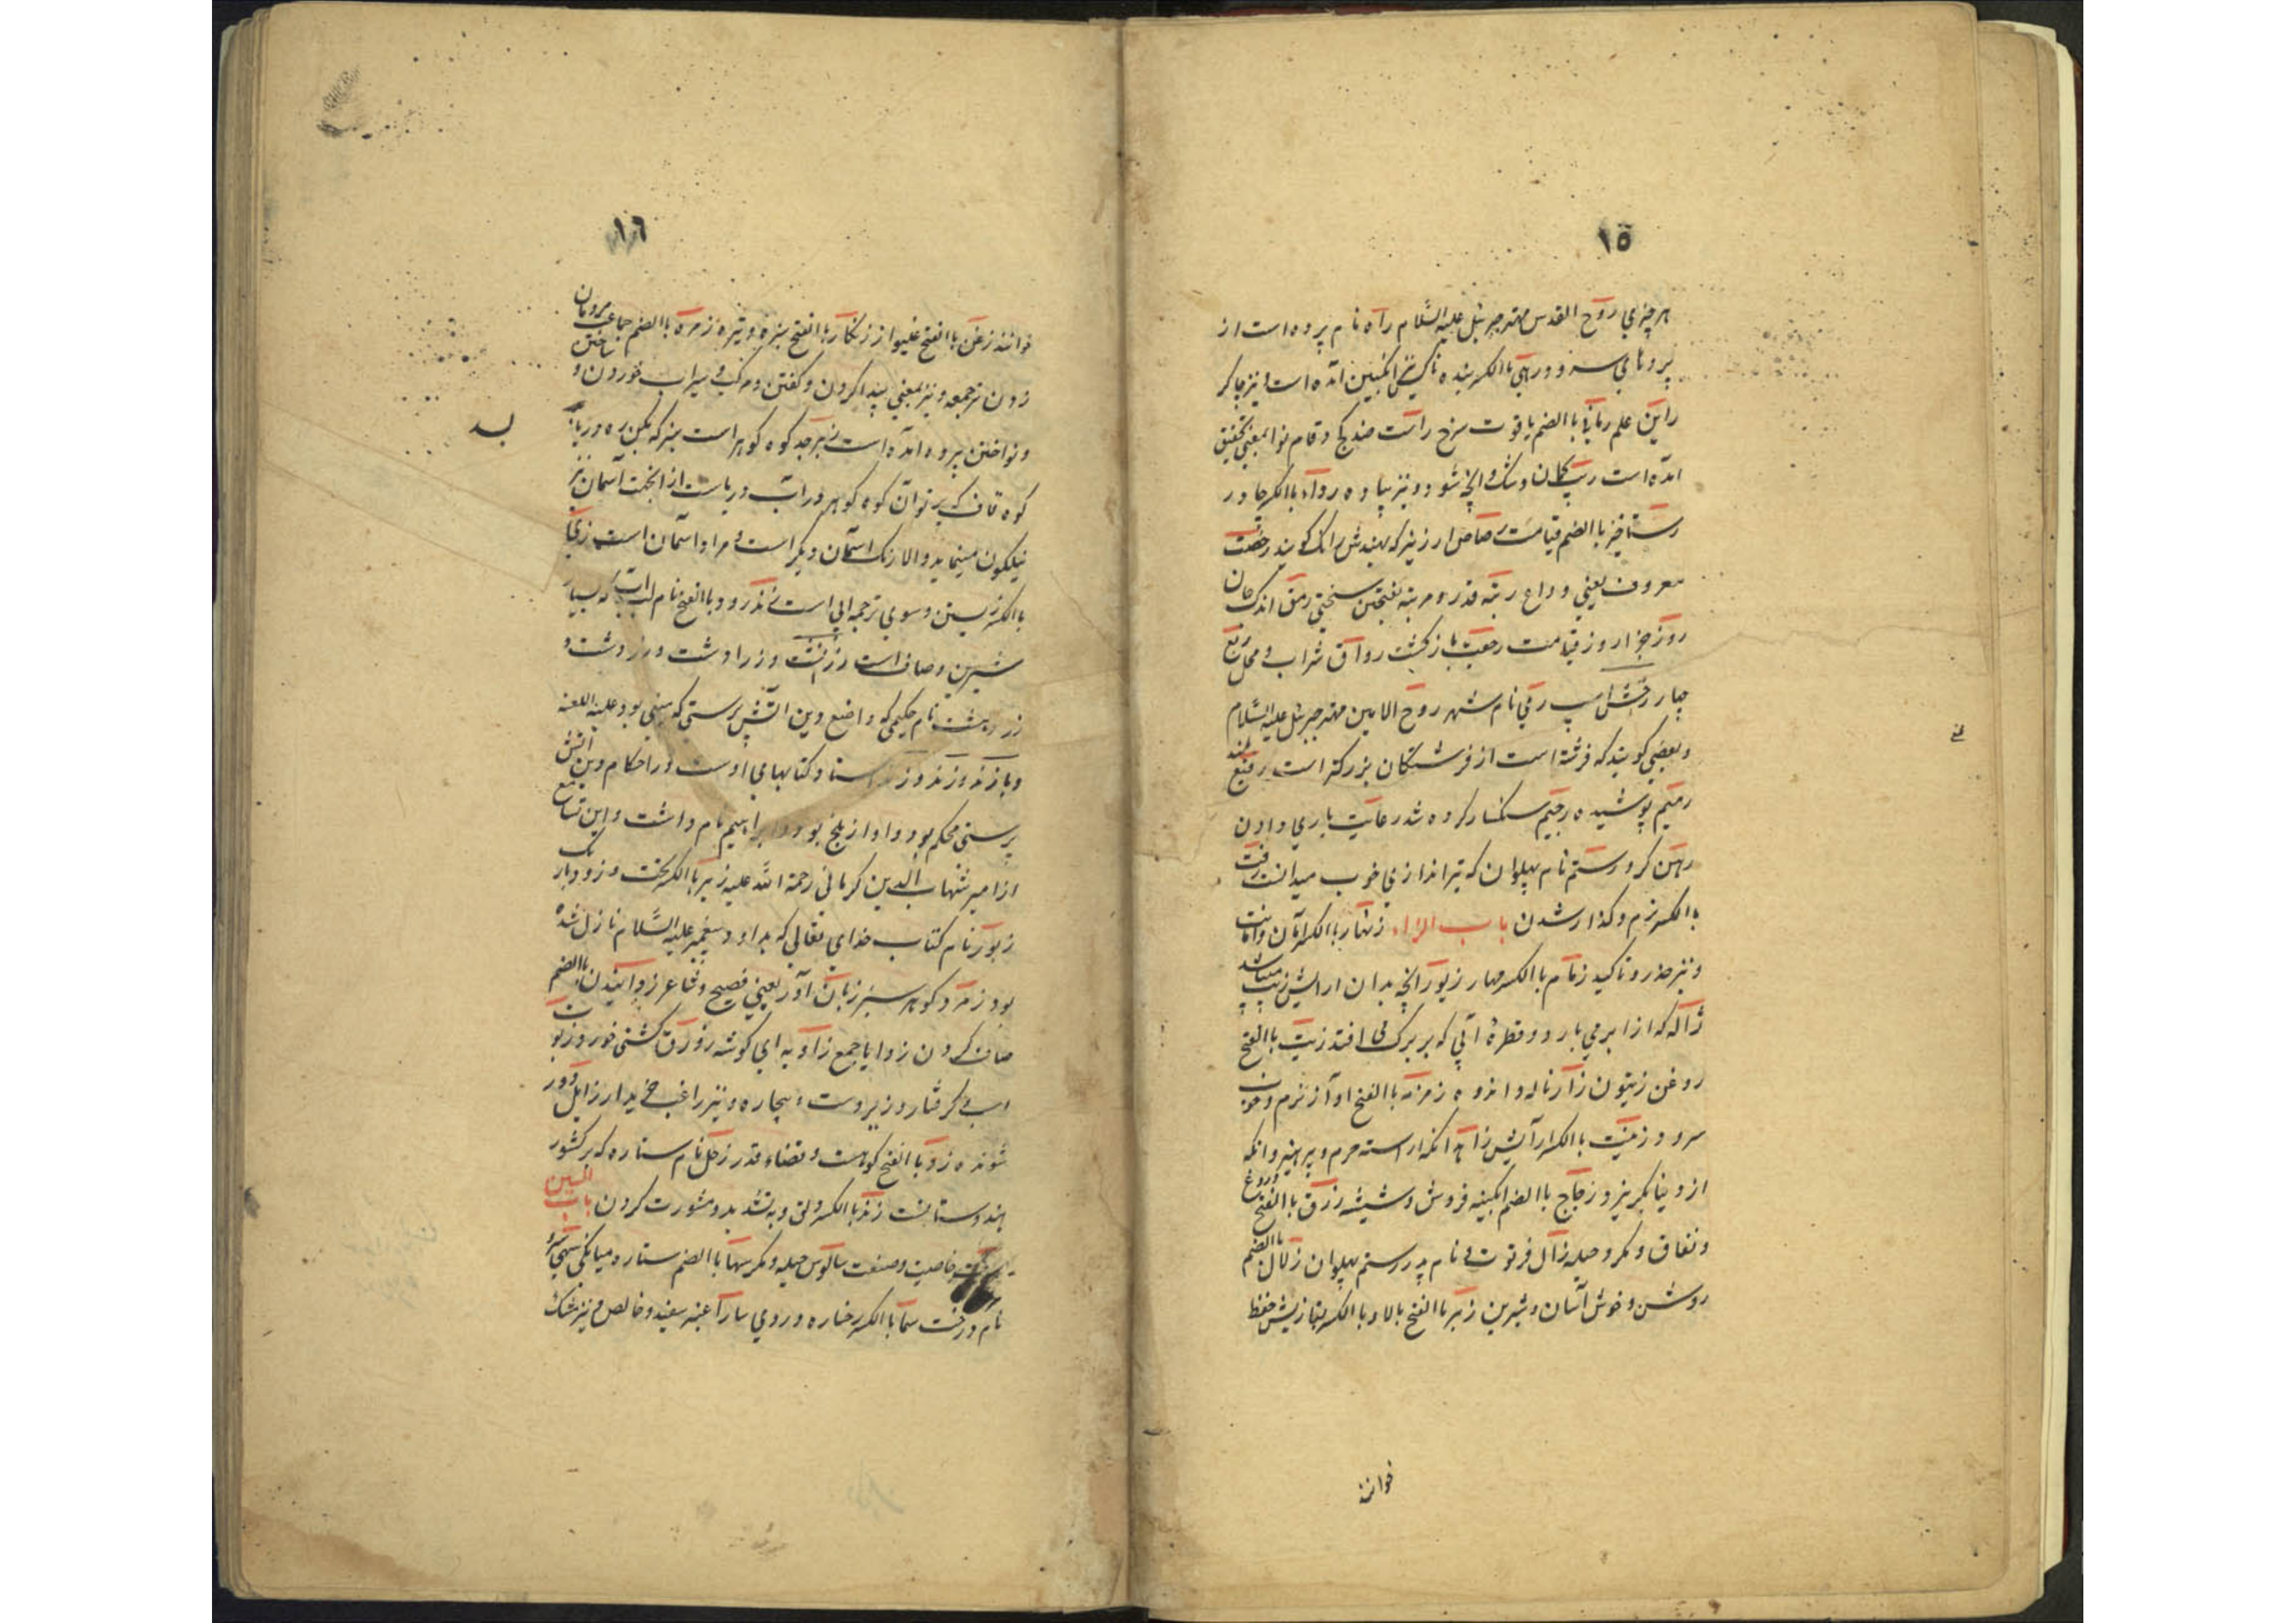 ١٥
هر چیزی روح القدس مهتر جبرئیل علیه السّلام راه نام پرده است از
پردهای سرود و رهی باالکسر بنده ناکس انگبین آمده است و نیز چاکر
رایت علم رمانی باالضم یاقوت سرخ راست ضد کج و قام نوا بمعنی تحقیق
آمده است ریب کمان و شک و آنچه شود و نیز پیاوه رواء باالکسر چادر
رستاخیز باالضم قیامت رصاص ارزیز که بهندش رانک کویند رخصت
معروف یعنی وداع رتبه قدر و مرتبه بفتحتین سختی رمق اندک جان
روز جزا روز قیامت رجعت باز کشت رواق شراب و محل ربع
چار رخش اسپ ری نام شهر روح الامین مهتر جبرئیل علیه السّلام
و بعضی کویند که فرشته است از فرشتکان بزرکتر است رفیع بلند
رمیم پوشیده رجیم سنکسار کرده شد رعایت یاری دادن
رهن کرو رستم نام پهلوان که تیراندازی خوب میدانست رقت
باالکسر نرم و کذار شدن باب الزاء زنهار باالکسر امان و امانت
و نیز حذر و تاکید زمام باالکسر مهار زیور آنچه بدان ارایش زیب میباشد
ژاله که از ابر می بارد و قطرهٔ آبی که بر برک کل افتد زیت باالفتح
روغن زیتون زار ناله و اندوه زمزمه باالفتح اواز نرم و خوب
سرود زینت باالکسر آرایش زاهد انکه اراسته حرم و پرهیز و انکه
از دنیا بکریزد زجاج باالضم ابکینه فروش و شیشه زرق باالفتح دروغ
و نفاق و مکر و حیله زال فرتوت و نام پدر رستم پهلوان زلال باالضم
روشن و خوش آسان و شیرین زبر باالفتح بالا و باالکسر بتازیش حفظ
خوانند
١٦
خوانند زغن باالفتح غلیواز زنکار باالفتح سبزه و تیره زمره باالضم جماعه مردمان
زدن ترجمه و نیز بمعنی پیدا کردن و کفتن و مرکب و سیراب خوردن و ساختن
و نواختن پرده آمده است زبرجد کوه کوهر است سبز که بکن ره دریا
کوه قاف که پرتو آن کوه کوهر در آب دریاست از انجهت آسمان نیز
نیلکون مینماید و الا رنک اسمان دیکر است و مراد اسمان است زی
باالکسر زیستن و سوی ترجمه الی است زنده رود باالفتح نام آب که بسیار
شیرین و صاف است زردهشت و زرادشت و زردشت و
زردهشت نام حکیمی که واضع دین اتش پرستی که مبنی بود علیه اللعنه
و پازند و زند و زند استا و کتابهای اوست در احکام دین اتش
پرستی محکم بود و او از بلخ بود و ابراهیم نام داشت و این تسامع
از امیر شهاب الدین کرمانی رحمة اللّه علیه زیر باالکسر تحت و زود و باریک
زبور نام کتاب خدای تعالی که بداود پیغمبر علیه السّلام نازل شده
بود زمرد کوهر سبز زبان آور یعنی فصیح و شاعر زدائیدن باالضم
صاف کردن زوایا جمع زاویه ای کوشه زورق کشتی خورد زبون
اسیر کرفتار و زیردست و بیچاره و نیز راغب خریدار زایل دور
شونده زو باالفتح کوهست و قضاء قدر زحل نام ستاره که بر کشور
هندوستانست زند باالکسر ولی و به تشدید و مشورت کردن باب السین
خاصیت و صنعت سالوس حیله و مکر سها باالضم ستاره میانکی سهی سرو
نام درخت سما باالکسر رخساره و روی سارا عنبر سفید و خالص و نیز مشک